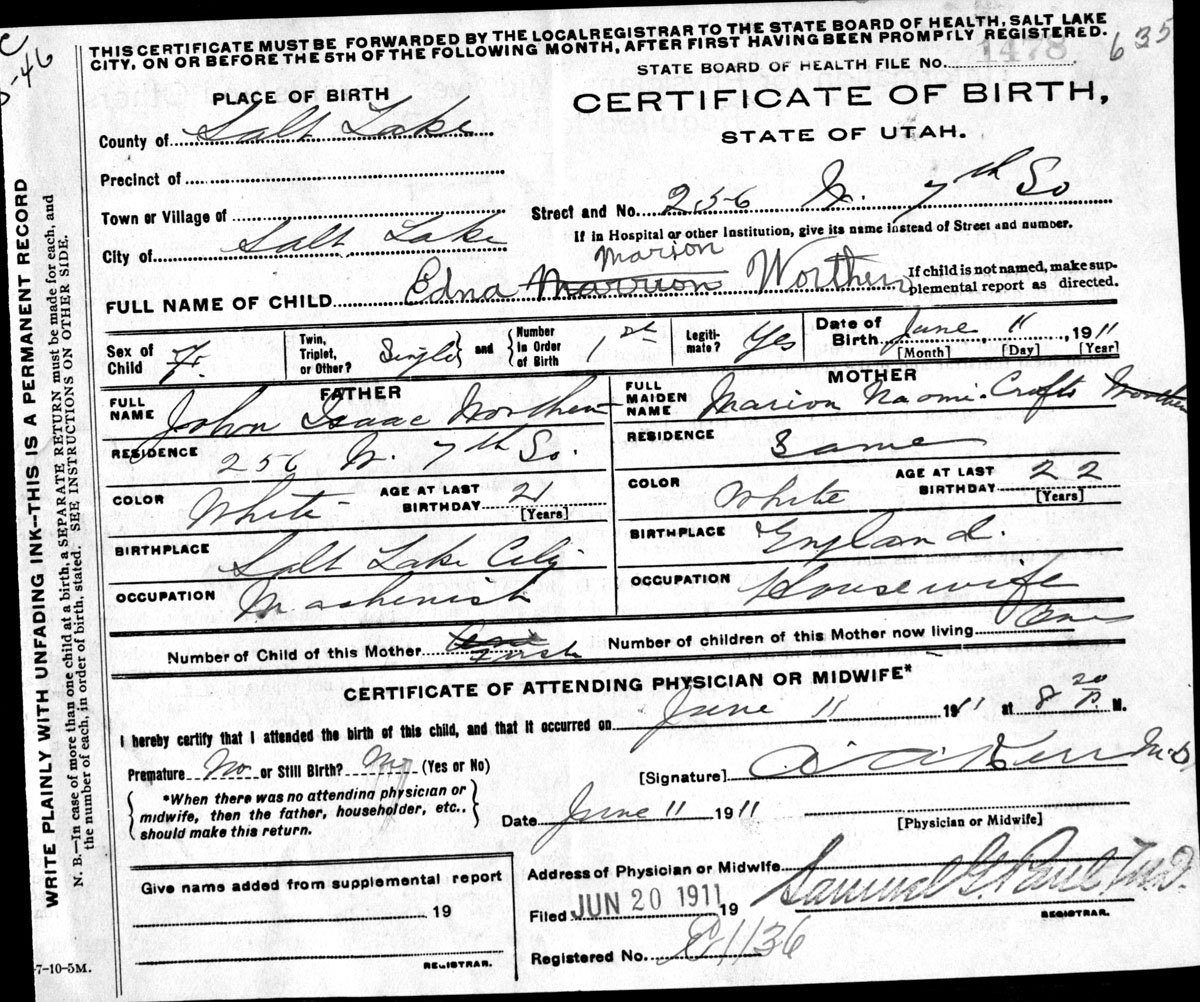 THIS CERTIFICATE MUST BE FORWARDED BY THE LOCALREGISTRAR TO THE STATE BOARD OF HEALTH, SALT LAKE
CITY, ON OR BEFORE THE 5TH OF THE FOLLOWING MONTH, AFTER FIRST HAVING BEEN PROMPTLY REGISTERED.
635
STATE BOARD OF HEALTH FILE NO. 1478
PLACE OF BIRTH
CERTIFICATE OF BIRTH,
STATE OF UTAH.
County of Salt Lake
Precinct of
Town or Village of
Street and No. 256 W. 7th So
If in Hospital or other Institution, give its name instead of Street and number.
City of Salt Lake
Marion
FULL NAME OF CHILD Edna Marrion Worthen
If child is not named, make sup-
plemental report as directed.
Sex of Child F.
Twin, Triplet, or Other? Single and Number in Order of Birth 1st
Legiti-mate? Yes
Date of Birth June 11, 1911
[Month] [Day] [Year]
FATHER
FULL NAME John Isaac Worthen
RESIDENCE 256 W. 7th So.
COLOR White
AGE AT LAST BIRTHDAY 21
[Years]
BIRTHPLACE Salt Lake City
OCCUPATION Mashenish
MOTHER
FULL MAIDEN NAME Marion Naomi Crafts Worthen
RESIDENCE Same
COLOR White
AGE AT LAST BIRTHDAY 22
[Years]
BIRTHPLACE England.
OCCUPATION Housewife
Number of Child of this Mother First
Number of children of this Mother now living One
CERTIFICATE OF ATTENDING PHYSICIAN OR MIDWIFE*
I hereby certify that I attended the birth of this child, and that it occurred on June 11 1911 at 8 20 P. M.
Premature No or Still Birth? No (Yes or No)
[Signature] Kerr M.D
*When there was no attending physician or
midwife, then the father, householder, etc.,
should make this return.
Date June 11 1911
[Physician or Midwife]
Address of Physician or Midwife
Give name added from supplemental report
19
REGISTRAR.
Filed JUN 20 1911 19
Samuel G. Paul M.D.
REGISTRAR.
Registered No. E1136
7-10-5M.
WRITE PLAINLY WITH UNFADING INK—THIS IS A PERMANENT RECORD
N. B.—In case of more than one child at birth, a SEPARATE RETURN must be made for each, and
the number of each, in order of birth, stated. SEE INSTRUCTIONS ON OTHER SIDE.